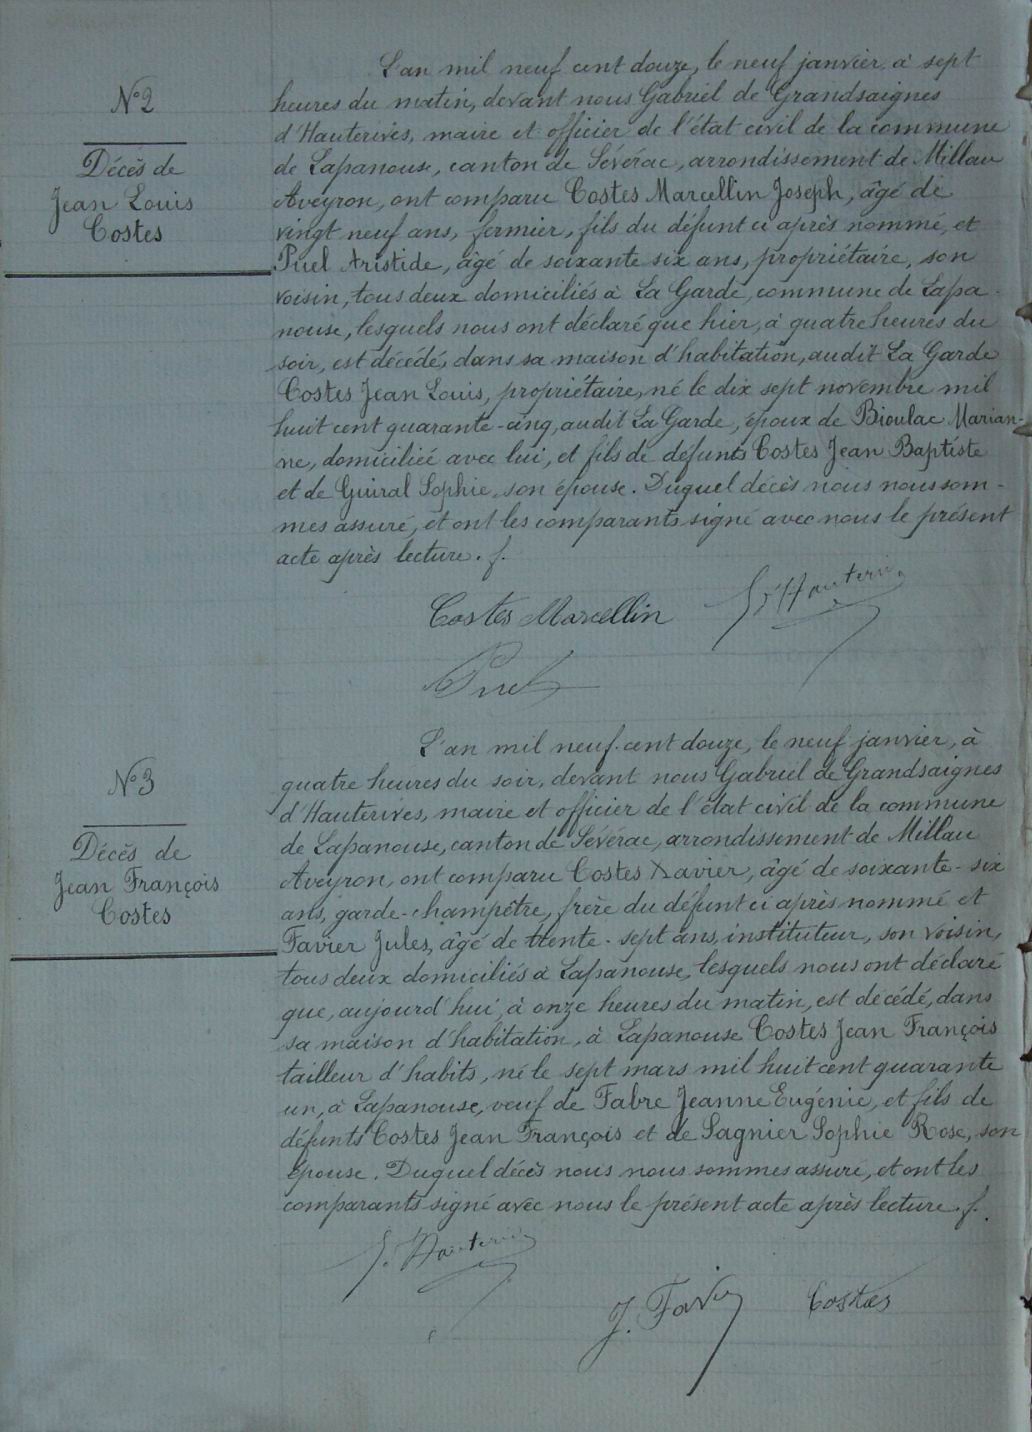 N° 2
Décès de
Jean Louis
Costes
L'an mil neuf cent douze, le neuf janvier, à sept
heures du matin, devant nous Gabriel de Grandsaignes
d'Hauterives, maire et officier de l'état civil de la commune
de Lapanouse, canton de Sévérac, arrondissement de Millau
Aveyron, ont comparu Costes Marcellin Joseph, âgé de
vingt neuf ans, fermier, fils du défunt ci après nommé, et
Puel Aristide, âgé de soixante six ans, propriétaire, son
voisin, tous deux domiciliés à La Garde, commune de Lapa-
nouse, lesquels nous ont déclaré que hier, à quatre heures du
soir, est décédé, dans sa maison d'habitation, audit La Garde
Costes Jean Louis, propriétaire, né le dix sept novembre mil
huit cent quarante-cinq, audit La Garde, époux de Bioulac Marian-
ne, domiciliée avec lui, et fils de défunts Costes Jean Baptiste
et de Guiral Sophie, son épouse. Duquel décès nous nous som-
mes assuré, et ont les comparants signé avec nous le présent
acte après lecture. f.
Costes Marcellin
G. d'Hauterives
Puel
N° 3
Décès de
Jean François
Costes
L'an mil neuf cent douze, le neuf janvier, à
quatre heures du soir, devant nous Gabriel de Grandsaignes
d'Hauterives, maire et officier de l'état civil de la commune
de Lapanouse, canton de Sévérac, arrondissement de Millau
Aveyron, ont comparu Costes Xavier, âgé de soixante-six
ans, garde-champêtre, frère du défunt ci après nommé et
Favier Jules, âgé de trente-sept ans, instituteur, son voisin,
tous deux domiciliés à Lapanouse, lesquels nous ont déclaré
que, aujourd'hui, à onze heures du matin, est décédé, dans
sa maison d'habitation, à Lapanouse Costes Jean François
tailleur d'habits, né le sept mars mil huit cent quarante
un, à Lapanouse, veuf de Fabre Jeanne Eugénie, et fils de
défunts Costes Jean François et de Sagnier Sophie Rose, son
épouse. Duquel décès nous nous sommes assuré, et ont les
comparants signé avec nous le présent acte après lecture. f.
G. d'Hauterives
J. Favier
Costes